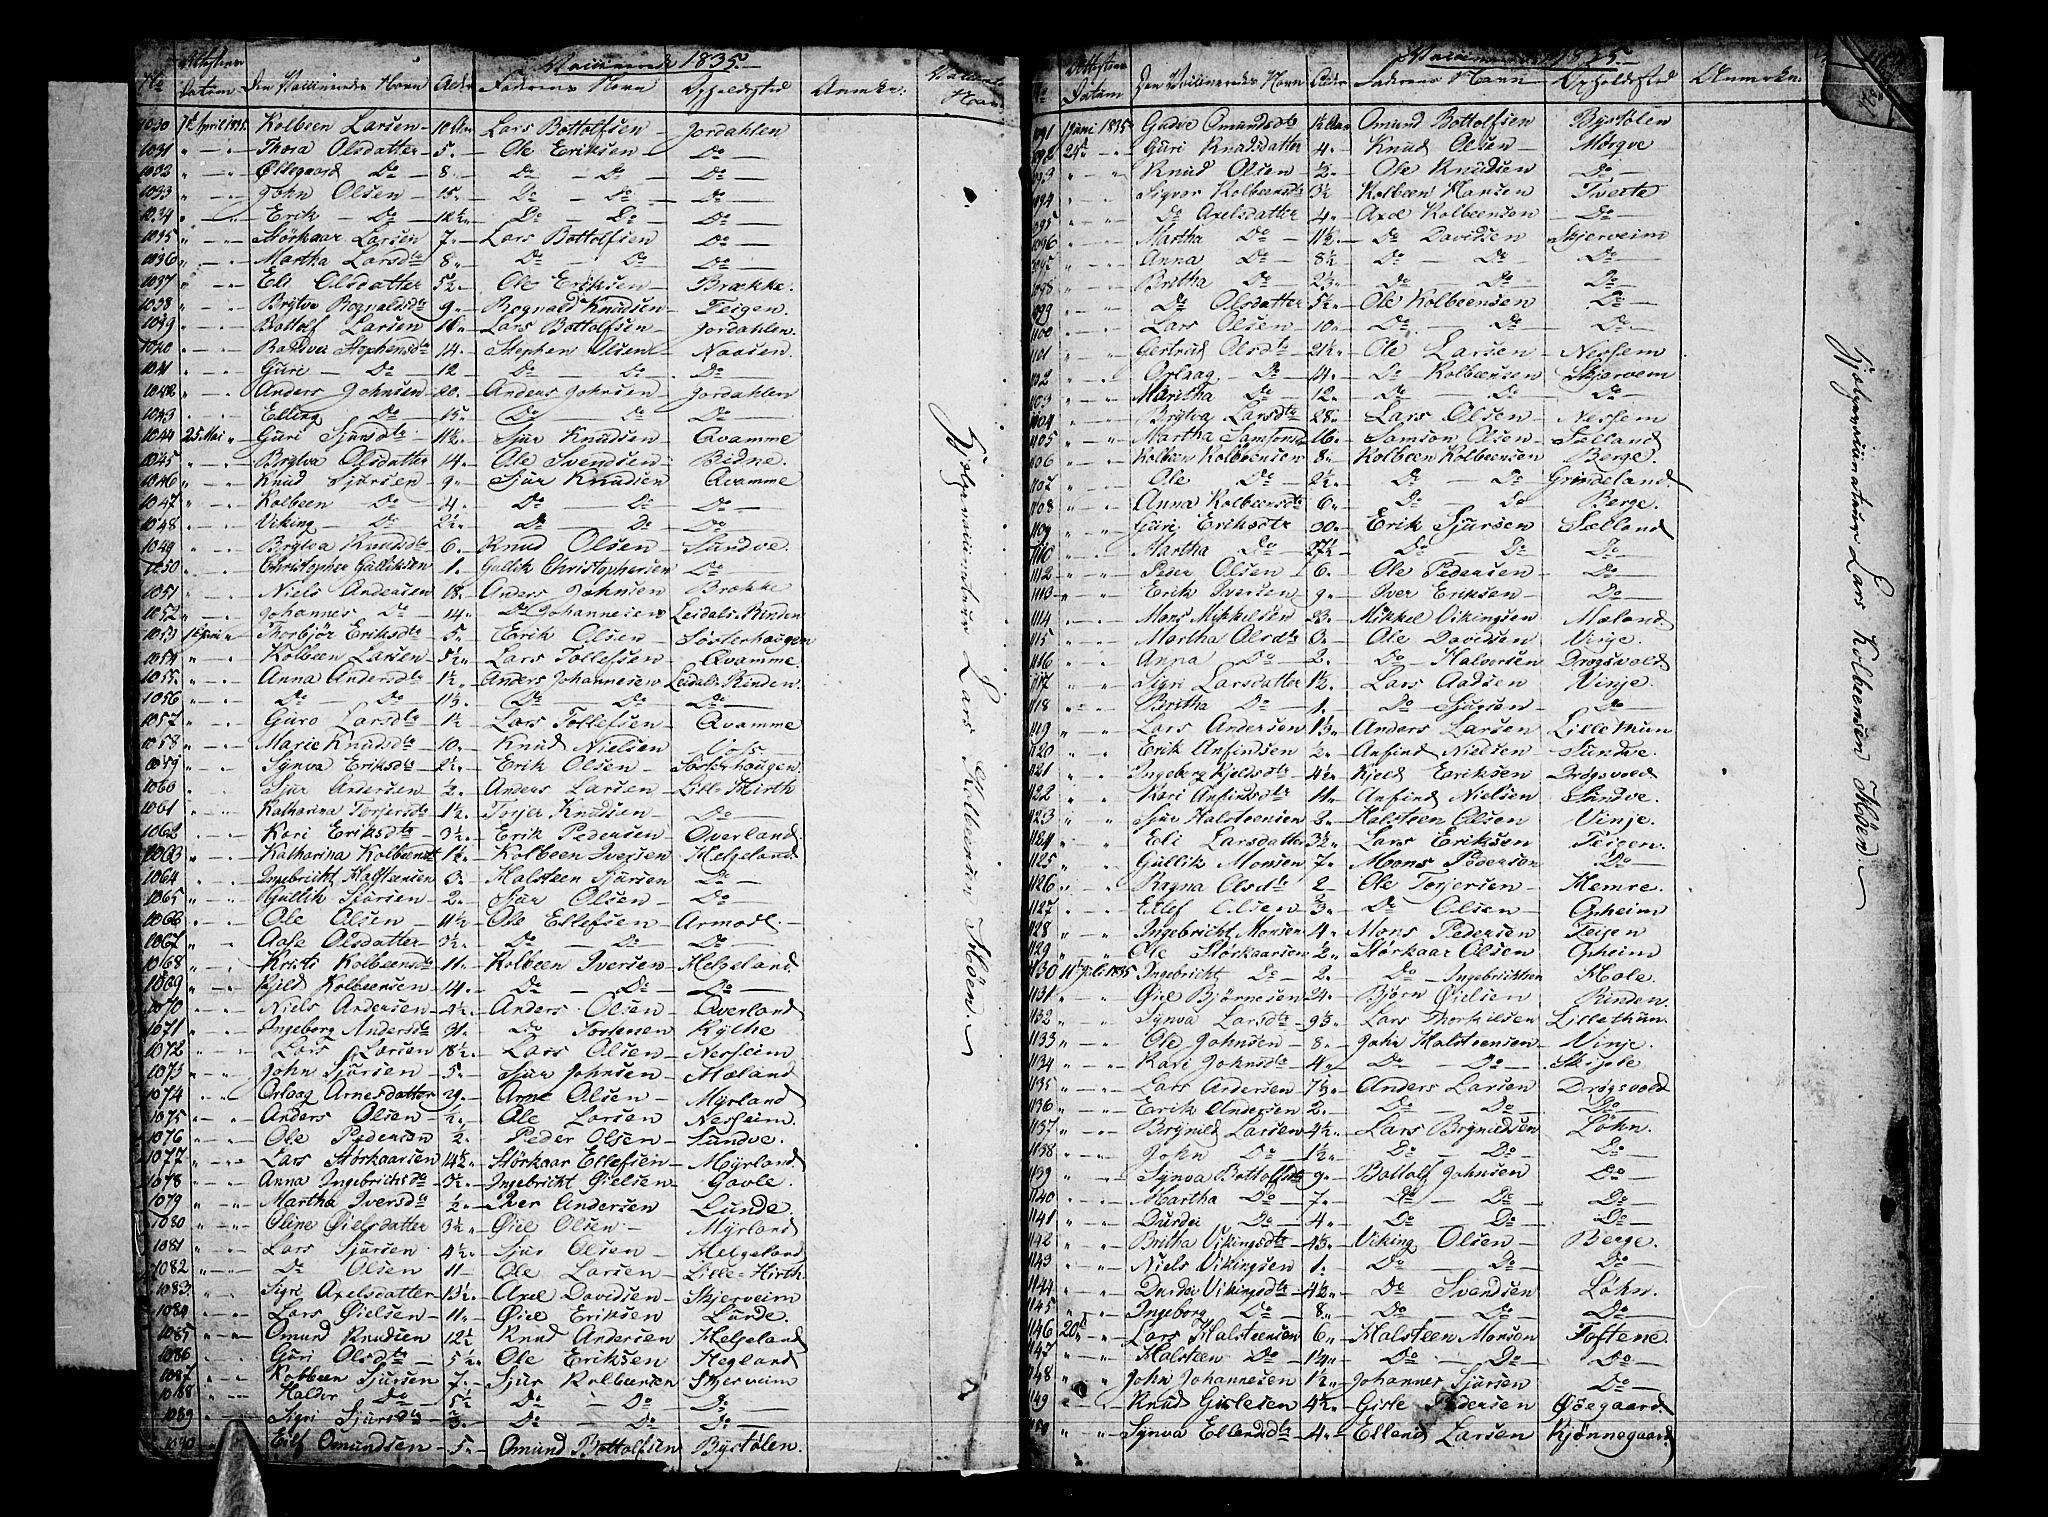 Vaccinerede 1835.
No Attestens Datum Den Vaccineredes Navn Alder Faderens Navn Opholdssted Anmrkn:
1030 7de April 1835. Kolbeen Larsen 10 Aar Lars Bottolfsen Jordahlen
1031 " " Thora Olsdatter 5 " Ole Eriksen Do
1032 " " Do 8 " Do Do Do
1033 " " John Olsen 15 " Do Do Do
1034 " " Erik Do Do Do Do
1035 " " Störkaar Larsen 7 " Lars Bottolfsen Do
1036 " " Martha Larsdtr 8 " Do Do Do
1037 " " Eli Olsdatter 5½ " Ole Eriksen Brække.
1038 " " Brytva Rognaldsdtr 9 " Rognald Knudsen Teigen.
1039 " " Bottolf Larsen Lars Bottolfsen Jordahlen.
1040 " " Stephensdtr 14 " Stephen Olsen Naasen.
1041 " " Guri Do 12 Do Do Do
1042 " " Anders Johnsen 20 " Anders Johnsen Jordahlen
1043 " " Elling Do 15 " Do Do Do
1044 25 Mai " Guri Sjursdtr 11½ " Sjur Knudsen Qvamme.
1045 " " Brytva Olsdatter 14 " Ole Svendsen Bidne.
1046 " " Knud Sjursen 9 " Sjur Knudsen Qvamme
1047 " " Kolbeen Do 4 " Do Do Do
1048 " " Viking Do 2½ " Do Do Do
1049 " " Brytva Knudsdtr 6 " Knud Olsen Sundve.
1050 " " Christopher Gulliksen 1 " Gullik Christophersen Do
1051 " " Niels Andersen 18 " Anders Johnsen Brække
1052 " " Johannes Do 14 " Do Johannesen Leidals Rinden
1053 1ste Juni " Thorbjør Eriksdtr 5 " Erik Olsen Søsterhaugen
1054 " " Kolbeen Larsen 5½ " Lars Tollefsen Qvamme.
1055 " " Anna Andersdtr 1½ " Anders Johannesen Leidals Rinden.
1056 " " Do Do Do Do Do
1057 " " Guro Larsdtr 1½ Lars Tollefsen Qvamme
1058 " " Marie Knudsdtr 10 " Knud Nielsen Voss
1059 " " Synva Eriksdtr 2½ " Erik Olsen Søsterhaugen.
1060 " " Sjur Andersen 2 " Anders Larsen Lille Hirth
1061 " " Katharina Torjersdtr 1½ Torjer Knudsen Do
1062 " " Kari Eriksdtr 3½ " Erik Pedersen Qverland.
1063 " " Katharina Kolbeensdt 1½ " Kolbeen Iversen Helgeland.
1064 " " Ingebricht Halsteensen 3 " Halsteen Sjursen Do
1065 " " Gullik Sjursen 2 " Sjur Olsen Do
1066 " " Ole Olsen 11½ Ole Ellefsen Armodt
1067 " " Aase Olsdatter 3½ " Do Do Do
1068 " " Kristi Kolbeensdtr 11 " Kolbeen Iversen Helgeland.
1069 " " Kolbeensen 14 " Do Do Do
1070 " " Niels Andersen 2½ " Anders Olsen Qverland
1071 " " Ingeborg Andersdtr 31 " Do Kylhe
1072 " " Lars Larsen 18½ " Lars Olsen Nesheim
1073 " " John Sjursen 5 " Sjur Johnsen Mæland
1074 " " Orlaag Arnesdatter 29 " Arne Olsen Myrland
1075 " " Anders Olsen ½ " Ole Larsen Nesheim
1076 " " Ole Pedersen ½ " Peder Olsen Sundve.
1077 " " Lars Störkaarsen 14½ Störkaar Ellefsen Myrland
1078 " " Anna Ingebrichtsdtr 3½ " Ingebricht Gielsen Gavle.
1079 " " Martha Iversdtr ½ " Iver Andersen Lunde.
1080 " " Oline Øielsdatter 3½ " Øiel Olsen Myrland
1081 " " Lars Sjursen 4½ " Sjur Olsen Helgeland
1082 " " Do Olsen 11 Ole Larsen Lille Hirth
1083 " " Sigri Axelsdatter 13½ " Axel Davidsen Skjerveim
1084 " " Lars Øielsen 11 " Øiel Eriksen Lunde.
1085 " " Omund Knudsen 12½ Knud Andersen Helgeland
1086 " " Guri Olsdtr 5½ " Ole Eriksen Hegland
1087 " " Kolbeen Sjursen 7 " Sjur Kolbeensen Skjerveim
1088 " " Haldor Do 5½ Do Do Do
1089 " " Sigri Sjursdtr Do Do Do
" Omundsen 5 " Omund Bottolfsen Bystölen.
Hjelpevaccinateur Lars Kolbeensen Möen.
Vaccinerede 1835.
No Attestens Datum Den Vaccineredes Navn Alder Faderens Navn Opholdssted Anmrkn:
1091 1 Juni 1835 Gudve Omundsdtr 1½ Aar Omund Bottolfsen Bystölen
1092 25de " Guri Knudsdatter 4 " Knud Olsen Mørqve
1093 " " Knud Olsen ½ " Ole Knudsen Do
1094 " " Sigvor Kolbeensdtr 3½ Kolbeen Hansen Tveite
1095 " " Do Axelsdatter 4 " Axel Kolbeensen Do
1096 " " Martha Do 11½ " Do Davidsen Skjerveim
" " Anna Do 8½ " Do Do Do
1098 " " Britha Do Do Do Do
1099 " " Do Olsdatter 5½ " Ole Kolbeensen Do
1100 " " Lars Olsen 10 " Do Do Do
1101 " " Gertrud Olsdtr 21½ " Ole Larsen Nessem
1102 " " Orlaag Do 14 " Do Kolbeensen Skjervem
1103 " " Maritha Do 12 " Do Do Do
1104 " " Brytva Larsdtr 28 " Lars Olsen Nessem
1105 " " Martha Samsonsd 16 " Samson Olsen Sælland
1106 " " Kolbeen Kolbeensen 8 " Kolbeen Kolbeensen Berge.
1107 " " Ole Do 2½ " Do Do Grindeland.
1108 " " Anna Kolbeensdtr 6 " Do Do Berge.
1109 " " Guri Eriksdtr 30 " Erik Sjursen Sælland
1110 " " Martha Do 27½ Do Do Do
1112 " " Peder Olsen 6 " Ole Pedersen Do
1113 " " Erik Iversen 9 " Iver Eriksen Do
1114 " " Mons Mikkelsen 23 " Mikkel Vikingsen Mæland
1115 " " Martha Olsdtr 3 " Ole Davidsen Vinje.
1116 " " Anna Do 2 " Do Halvorsen Drogsvold
1117 " " Sigri Larsdatter 1½ " Lars Aadsen Vinje.
1118 " " Britha Do 1 " Do Sjursen Do
1119 " " Lars Andersen Anders Larsen Lillethun
1120 " " Erik Anfindsen 2 " Anfind Nielsen Sundve.
1121 " " Ingeborg Kjeldsdtr 4½ " Kjeld Eriksen Drogsvold
1122 " " Kari Anfindsdtr 11 " Anfind Nielsen Sundve.
1123 " " Sjur Halsteensen 2 " Halsteen Olsen Vinje.
1124 " " Eli Larsdatter 3½ " Lars Eriksen Teigen.
1125 " " Gullik Monsen 7 " Mons Pedersen Do
1126 " " Rogna Olsdtr 2 Ole Torjersen Hemre.
1127 " " Ellef Olsen Do Olsen Opheim
1128 " " Ingebricht Monsen 4 " Mons Pedersen Teigen
1129 " " Ole Störkaarsen ½ " Störkaar Olsen Opheim
1130 11te Juli 1835 Ingebricht Do 2 " Do Ingebrichtsen Hole
1131 " " Øiel Bjørnesen 24 " Bjørn Øielsen Rinden
1132 " " Synva Larsdtr Lars Thorkilsen Lillethun.
1133 " " Ole Johnsen 8 " John Halsteensen Vinje
1134 " " Kari Johnsdtr 4 " Do Do
1135 " " Lars Andersen Anders Larsen Drogsvold
1136 " " Erik Andersen 2 " Do Do Do
1137 " " Brynild Larsen 4½ " Lars Brynildsen Løhn.
1138 " " John Do 1½ " Do Do Do
1139 " " Synva Bottolfsdtr 9 " Bottolf Johnsen Do
1140 " " Martha Do 7 " Do Do Do
1141 " " Durdei Do 4 " Do Do Do
1142 " " Britha Vikingsdtr Viking Olsen Berge.
1143 " " Niels Vikingsen 1 " Do Do Do
1144 " " Durdei Vikingsdtr 4½ " Do Svendsen Løhn.
1145 " " Ingeborg Do 8 " Do Do Do
1146 20de " Lars Halsteensen 6 " Halsteen Monsen Toftene
1147 " " Halsteen Do Do Do Do
1148 " " John Johannesen 1½ " Johannes Sjursen Do
1149 " " Knud Gislesen 4½ " Gisle Pedersen Øjegaard.
" " Synva Ellendsdtr 4 " Ellend Larsen Kjønnegaard
Hjelpevaccinateur Lars Kolbeensen Möen.